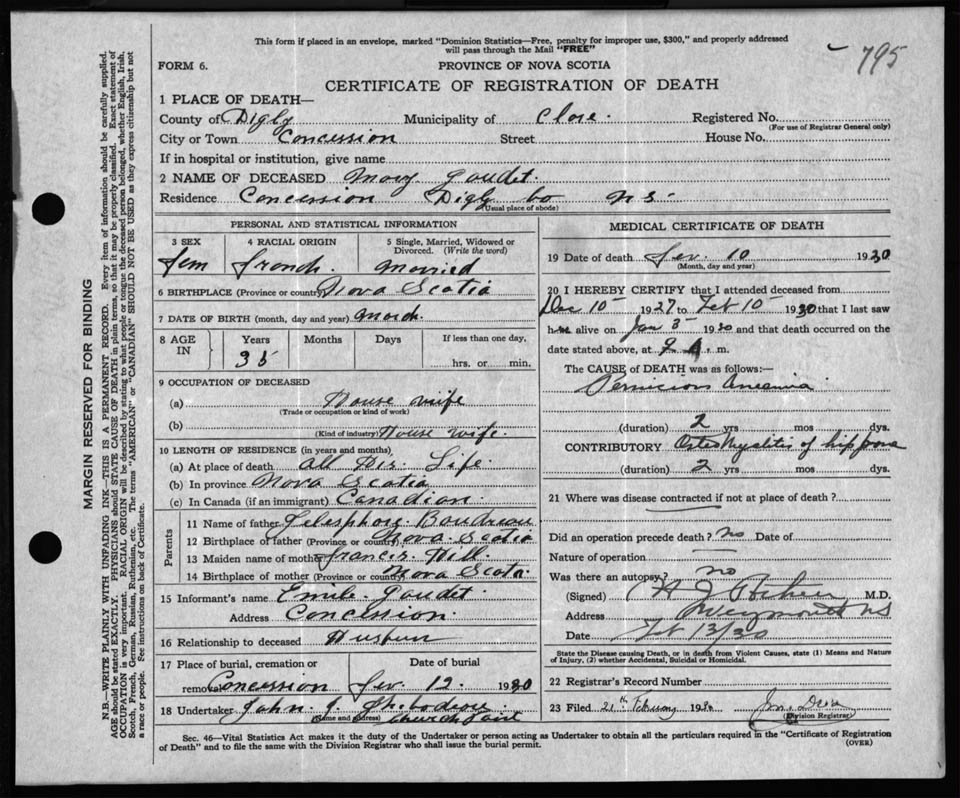 This form if placed in an envelope, marked "Dominion Statistics—Free, penalty for improper use, $300," and properly addressed
will pass through the Mail "FREE"
795
FORM 6.
PROVINCE OF NOVA SCOTIA
CERTIFICATE OF REGISTRATION OF DEATH
1 PLACE OF DEATH—
County of Digby Municipality of Clare. Registered No.
(For use of Registrar General only)
City or Town Concession Street House No.
If in hospital or institution, give name
2 NAME OF DECEASED Mary Goudet.
Residence Concession Digby Co N S.
(Usual place of abode)
PERSONAL AND STATISTICAL INFORMATION
3 SEX 4 RACIAL ORIGIN 5 Single, Married, Widowed or
Divorced. (Write the word)
Fem French. Married
6 BIRTHPLACE (Province or country) Nova Scotia
7 DATE OF BIRTH (month, day and year) March.
8 AGE IN Years Months Days If less than one day,
35 hrs. or min.
9 OCCUPATION OF DECEASED
(a) House wife
(Trade or occupation or kind of work)
(b) House wife.
(Kind of industry)
10 LENGTH OF RESIDENCE (in years and months)
(a) At place of death all Her Life
(b) In province Nova Scotia
(c) In Canada (if an immigrant) Canadian.
Parents
11 Name of father Telesphore Boudreau
12 Birthplace of father (Province or country) Nova Scotia
13 Maiden name of mother Francis Hill
14 Birthplace of mother (Province or country) Nova Scota
15 Informant's name Emile Goudet.
Address Concession.
16 Relationship to deceased
17 Place of burial, cremation or removal Date of burial
Concession Fev. 12. 1930
18 Undertaker John J.
(Name and address) Church Point
MEDICAL CERTIFICATE OF DEATH
19 Date of death Fev. 10 1930
(Month, day and year)
20 I HEREBY CERTIFY that I attended deceased from
Dec 10 1927 to Feb 10 1930 that I last saw
her alive on Jan 3 1930 and that death occurred on the
date stated above, at 9 A. m.
The CAUSE of DEATH was as follows:—
Pernicious Aneamia
(duration) 2 yrs mos dys.
CONTRIBUTORY Osteomyalitis of hip bone
(duration) 2 yrs mos dys.
21 Where was disease contracted if not at place of death?
Did an operation precede death? no Date of
Nature of operation
Was there an autopsy? no
(Signed) M.D.
Address Weymouth N S
Date Feb 13/30
State the Disease causing Death, or in death from Violent Causes, state (1) Means and Nature
of Injury, (2) whether Accidental, Suicidal or Homicidal.
22 Registrar's Record Number
23 Filed 21th February 1930
(Division Registrar)
Sec. 46—Vital Statistics Act makes it the duty of the Undertaker or person acting as Undertaker to obtain all the particulars required in the "Certificate of Registration
of Death" and to file the same with the Division Registrar who shall issue the burial permit.
(OVER)
MARGIN RESERVED FOR BINDING
N.B.—WRITE PLAINLY WITH UNFADING INK—THIS IS A PERMANENT RECORD. Every item of information should be carefully supplied.
AGE should be stated EXACTLY. PHYSICIANS should STATE CAUSE OF DEATH in plain terms, so that it may be properly classified. Exact statement of
OCCUPATION is very important. RACIAL ORIGIN will be described by stating to what people or tongue the deceased person belonged, whether English, Irish,
Scotch, French, German, Russian, Ruthenian, etc. The terms "AMERICAN" or "CANADIAN" SHOULD NOT BE USED as they express citizenship but not
a race or people. See instructions on back of Certificate.